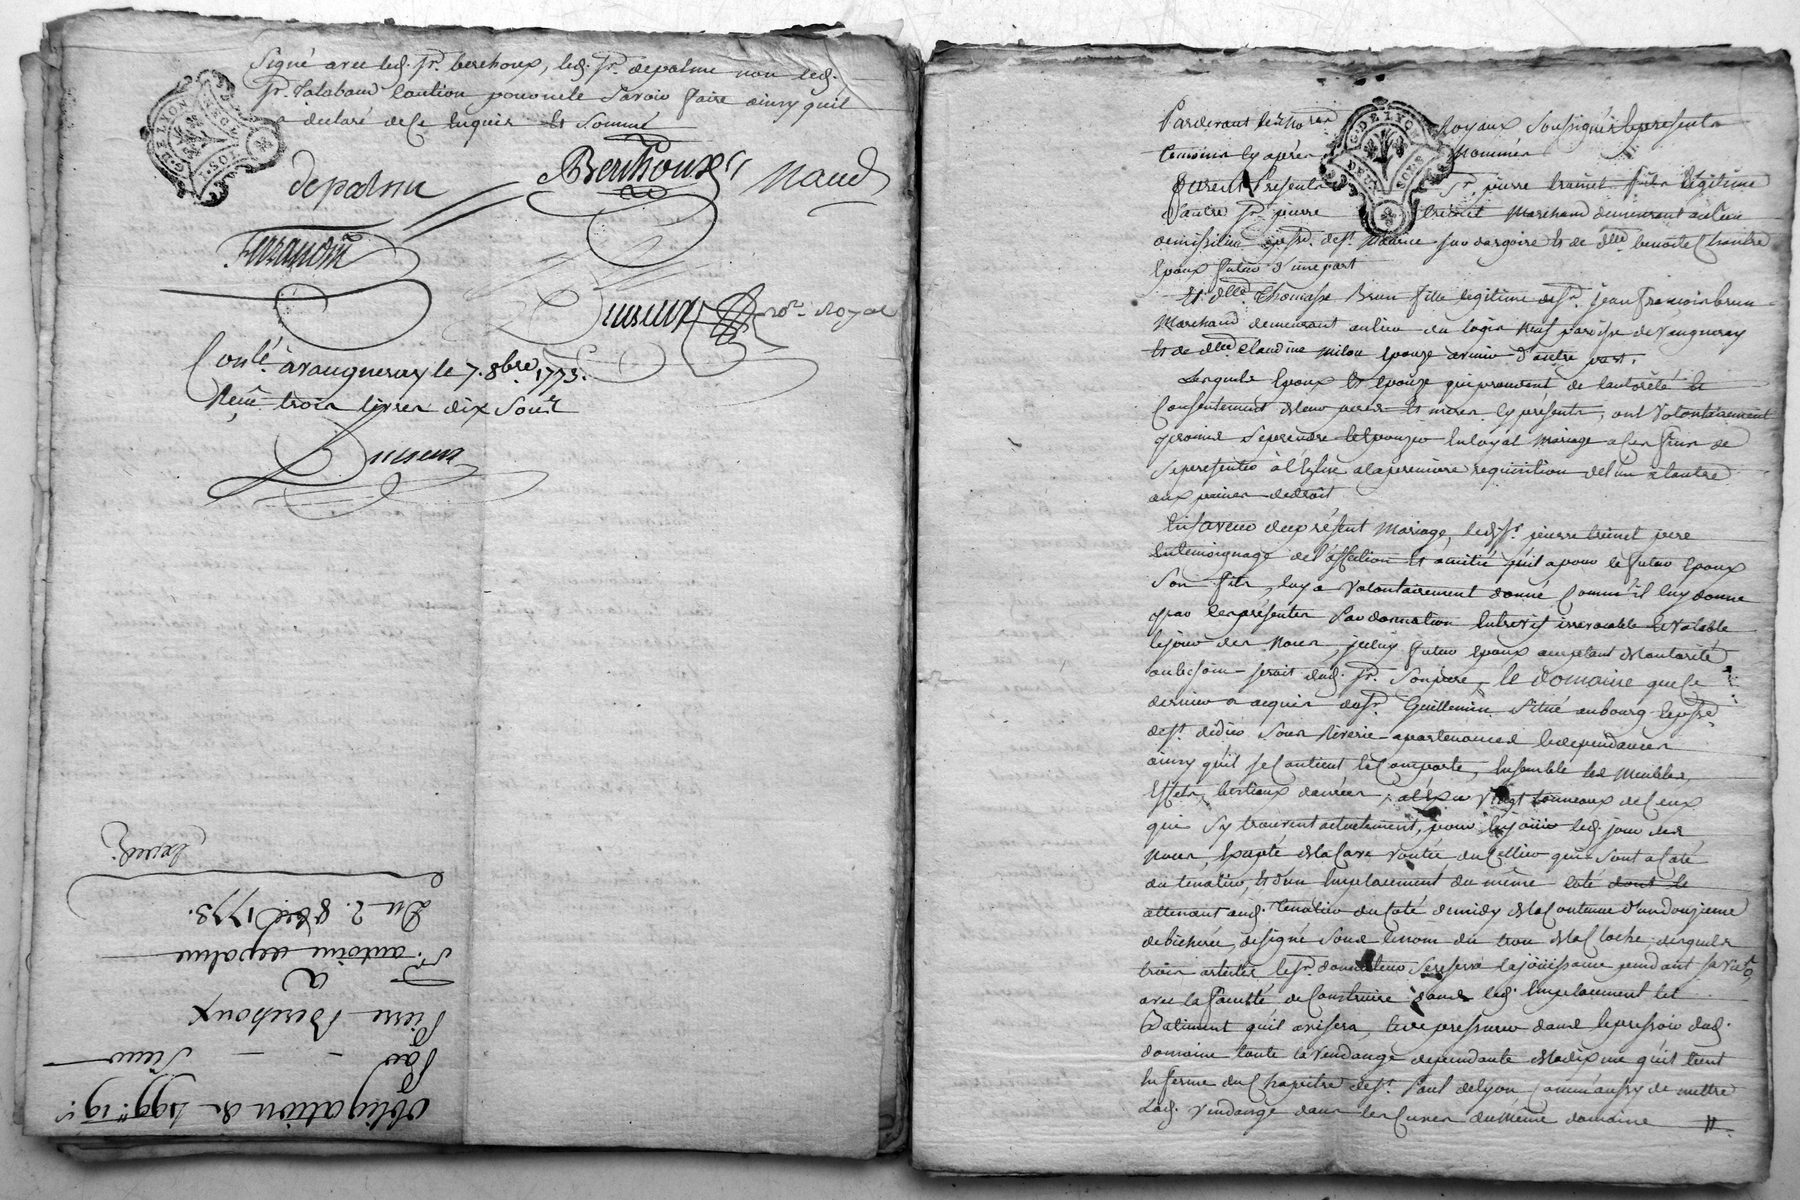 Signé avec led. Sr. berthoux, led. Sr. depalme non led.
Sr. Salabaud Caution pour ne le Savoir faire ainsy quil
a declaré de ce Enquis et Sommé
G. DE LYON
DEUX SOLS
depalme
Berthoux
Naud
Ferrand
Duvieux
nore. Royal
Conlé. à vaugneray le 7. 8bre. 1773.
Reçu trois livres dix Sous
Obligation de 199lt. 19s.
Par Sieur
Pierre Berthoux
a
Sr. antoine depalme
Du 2. 8bre 1773.
Expedi.
Pardevant les nores
Royaux Soussignés le presents
temoins Cy après
Nommés
G. DE LYON
DEUX SOLS
furent Presents
Sr. pierre trimet fils legitime
d'autre Sr. pierre
trimet Marchand demeurant au lieu
de St. Maurice sur dargoire et de dlle. benoite Chantre
Epoux futur d'une part
Et dlle. Thomasse Brun fille legitime de Sr. Jean francois brun
Marchand demeurant au lieu du logis Neuf paroisse de Vaugneray
et de dlle. Claudine Milon Epouse avenir d'autre part.
Lesquels Epoux et Epouse qui procedent de l'autorité et
Consentement de leur peres et meres Cy présents, ont Volontairement
promis Se prendre et Epouser En loyal Mariage a Ces fins de
Se presenter à l'Eglise a la premiere requisition de l'un à l'autre
aux peines de droit
En faveur du présent Mariage, led. Sr. pierre trimet pere
En temoignage de l'affection et amitié qu'il a pour le futur Epoux
Son fils, luy a Volontairement donné Comme il luy donne
par Ces présentes Par donnation Entrevif irrevocable et Valable
le jour des Noces, icelui futur Epoux acceptant de l'autorité
au besoin serait dud. Sr. Son pere, le domaine que Ce
dernier a acquis du Sr. Guillemin Situé au bourg et psse.
de St. didier Sous Riverie apartenances et dependances
ainsy qu'il Se Contient et Comporte, Ensemble les Meubles
Effets, bestiaux danrées, vingt tonneaux de Ceux
qui S'y trouvent actuellement, pour En jouir led. jour des
Noces, Excepté de la Cave voutée du Cellier qui Sont a Coté
du tenalier, et d'un Emplacement du même Coté dont le
attenant aud. Tenalier du Coté de midy de la Contenue d'un douzieme
de bicherée, designé Sous le nom du trou de la Cloche, desquels
trois articles le Sr. donnateur Se reserve la jouissance pendant sa vie,
avec la faculté de Construire dans led. Emplacement tel
Batiment qu'il avisera, et de pressurer dans le pressoir dud.
domaine toute la Vendange dependante de la dixme qu'il tient
En ferme du Chapitre de St. Paul de Lyon Comm'aussy de mettre
Lad. Vendange dans les Cuves du même domaine